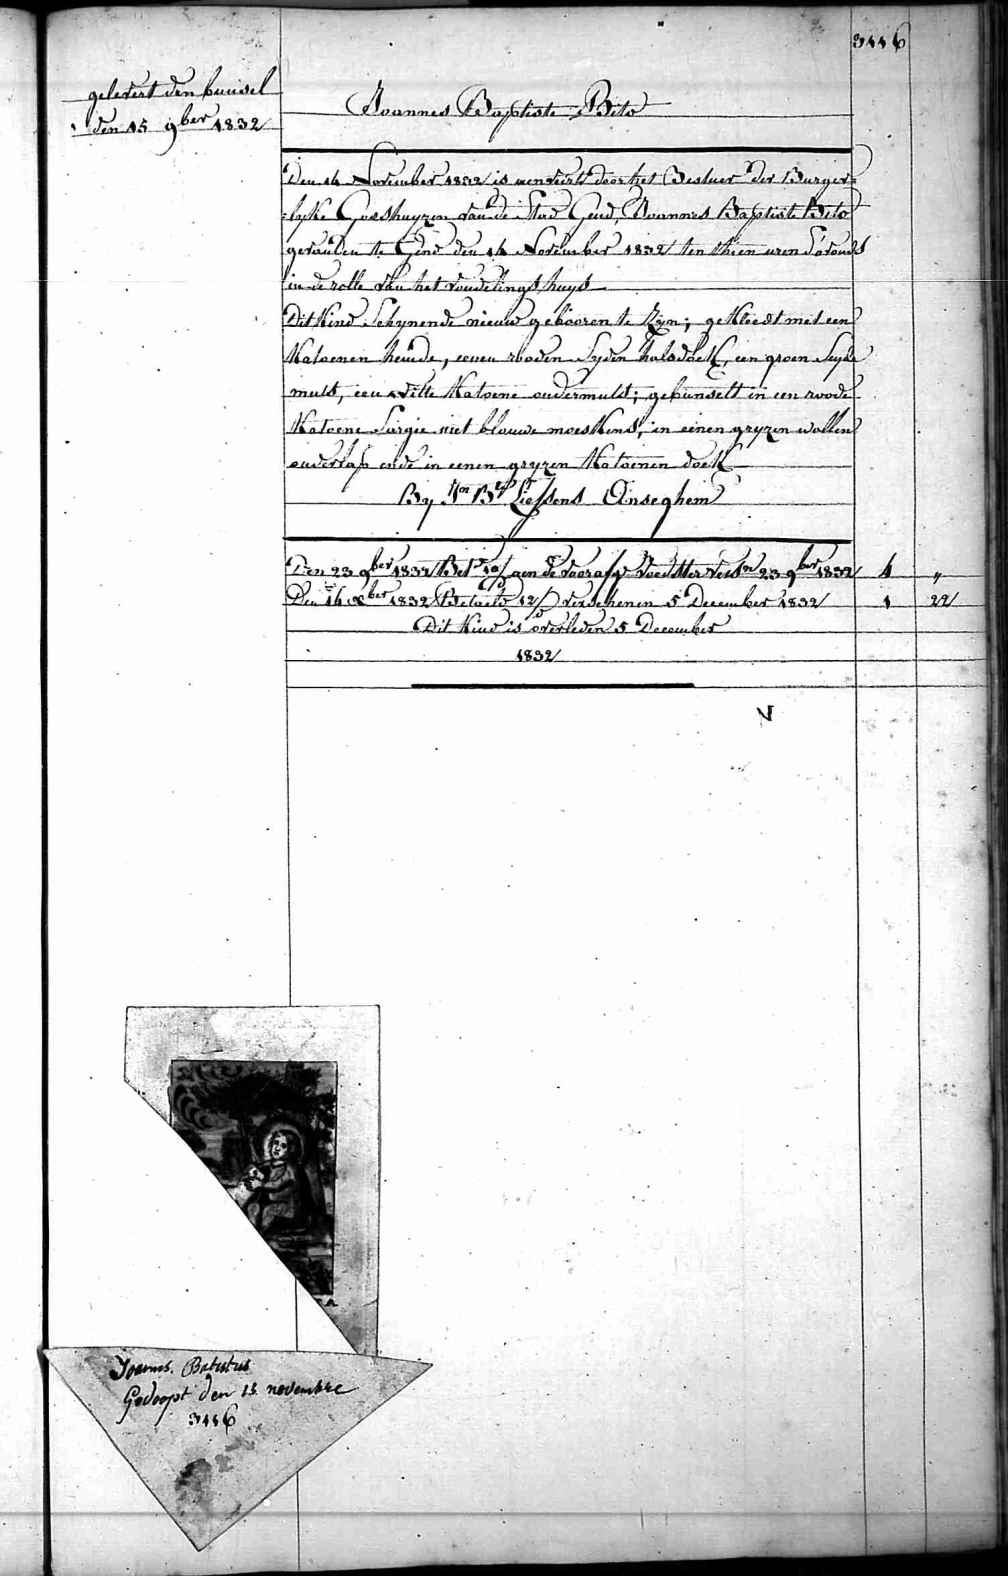 3446
gelevert den bunsel
den 15 9ber 1832
Joannes Baptiste Bito
Den 14 November 1832 is aenveirt door het Bestuer der Burger=
=lyke Godshuyzen van de Stad Gend, Joannes Baptiste Bito
gevonden te Gend den 14 November 1832 ten thien uren S'avonds
in de rolle van het vondelings huys
Dit Kind Schynende nieuw gebooren te Zyn; gekleedt met een
Katoenen hemde, eenen rooden Syden halsdoek, een groen Syde
muts, een witte Katoene ondermuts; gebunselt in een roode
Katoene Sargie met blauwe moeskens, in eenen gryzen wollen
onderlap ende in eenen gryzen Katoenen doek
By Jn Bte Liessens Onseghem
Den 23 9ber 1832 Betd aen de voorafg Voedster versn 23 9ber 1832 4 "
Den 14 Xber 1832 Betaelt 12/D verschenen 5 December 1832 1 22
Dit Kind is overleden 5 December
1832
V
Joannes. Batistus
Gedoopt den 15 novembre
3446